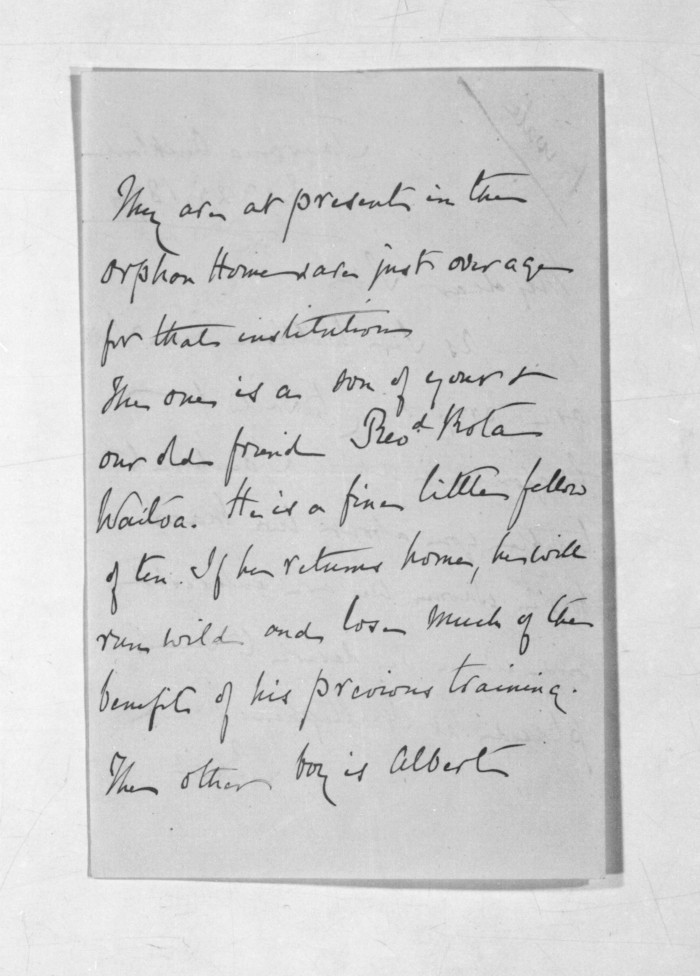 They are at present in the
Orphan Home & are just over age
for that institution
The one is a son of yours &
our old friend Revd Rota
Waitoa. He is a fine little fellow
of ten. If he returns home, he will
run wild and lose much of the
benefit of his previous training.
The other boy is Albert